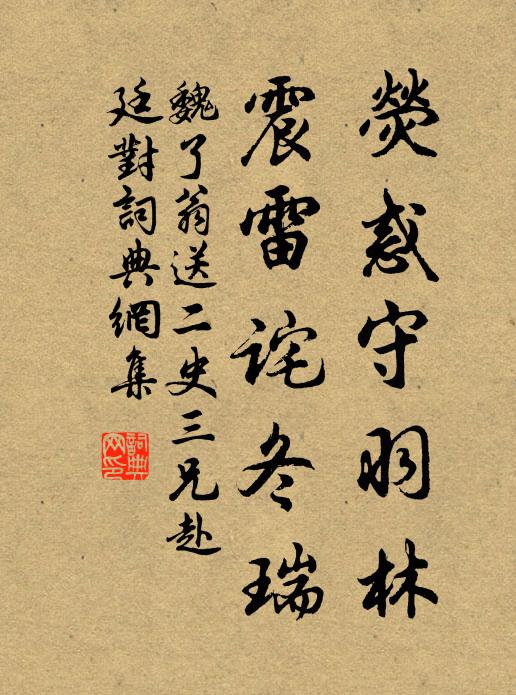 熒惑守羽林
震雷詫冬瑞
魏了翁送二史三兄赴
廷對詞典網集
詞典
网印